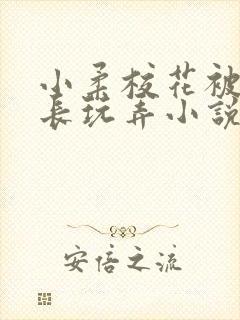 小柔校花被
长玩弄小説
安倍之流